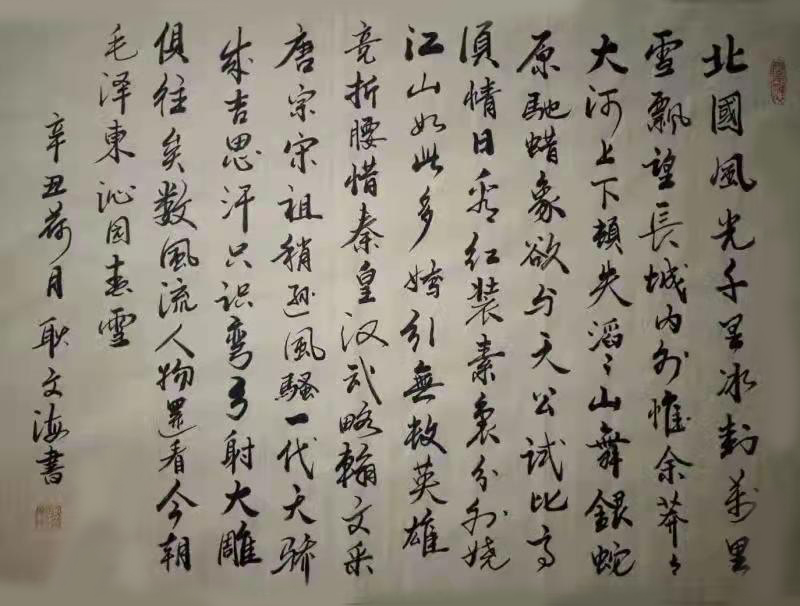 北國風光千里冰封萬里
雪飄望長城内外惟余莽々
大河上下頓失滔々山舞銀蛇
原馳蜡象欲与天公試比高
須情日看红装素裹分外娆
江山如此多娇引無数英雄
竞折腰惜秦皇汉武略輸文采
唐宗宋祖稍逊風騷一代天骄
成吉思汗只识弯弓射大雕
俱往矣数風流人物還看今朝
毛泽東沁园春雪
辛丑荷月耿文海書